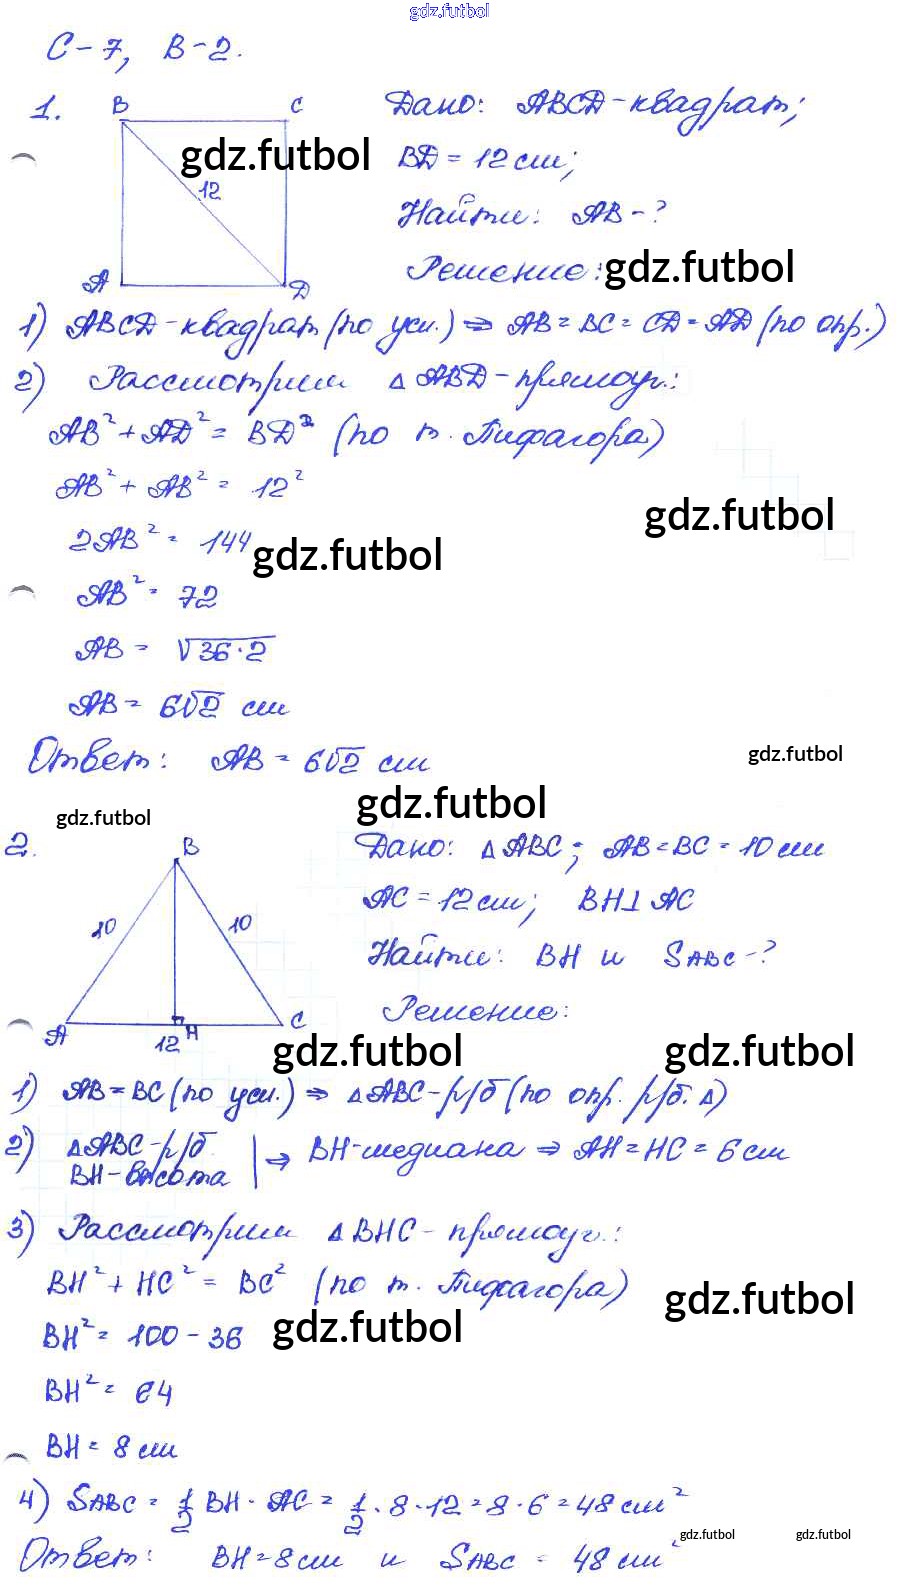 gdz.futbol
С-7, В-2.
1. B C Дано: ABCD-квадрат;
gdz.futbol BD = 12 см;
12
Найти: AB-?
A D Решение: gdz.futbol
1) ABCD-квадрат (по усл.) ⇒ AB = BC = CD = AD (по опр.)
2) Рассмотрим △ ABD-прямоуг.:
AB² + AD² = BD² (по т. Пифагора)
AB² + AB² = 12²
gdz.futbol
2AB² = 144 gdz.futbol
AB² = 72
AB = √36·2
AB = 6√2 см
Ответ: AB = 6√2 см
gdz.futbol
gdz.futbol gdz.futbol
2. B Дано: △ ABC; AB = BC = 10 см
10 10 AC = 12 см; BH⊥AC
Найти: BH и SABC-?
A H C Решение:
12 gdz.futbol gdz.futbol
1) AB = BC (по усл.) ⇒ △ABC-р/б (по опр. р/б. △)
2) △ABC-р/б
BH-высота | ⇒ BH-медиана ⇒ AH = HC = 6 см
3) Рассмотрим △BHC-прямоуг.:
BH² + HC² = BC² (по т. Пифагора)
gdz.futbol gdz.futbol
BH² = 100 - 36
BH² = 64
BH = 8 см
4) SABC = 1/2 BH · AC = 1/2 · 8 · 12 = 8 · 6 = 48 см²
gdz.futbol gdz.futbol
Ответ: BH = 8 см и SABC = 48 см²